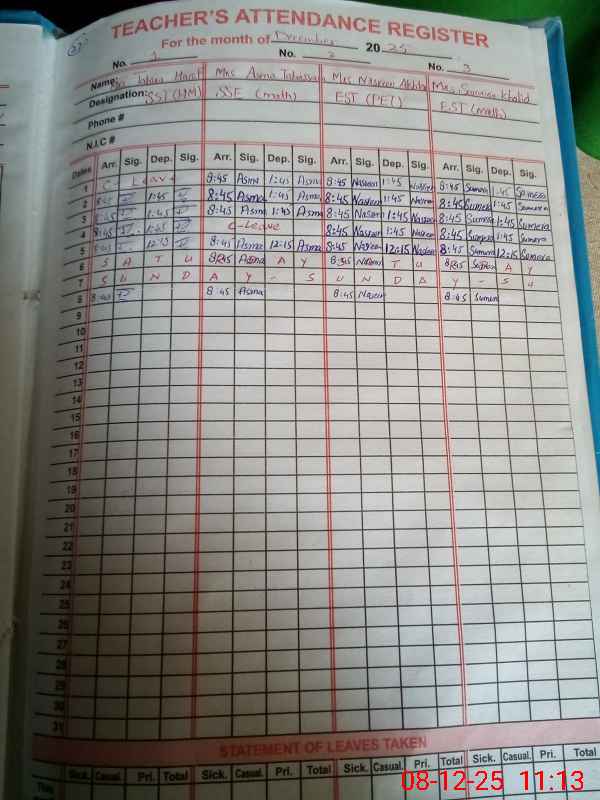 TEACHER'S ATTENDANCE REGISTER
For the month of December 2025
No. 1 No. 2 No. 3
Name: Mrs Asma Mrs Nasreen Mrs Sumaira Khalid
Designation: SST (HM) SSE (math) EST (PET) EST (math)
Phone #
N.I.C #
Dates Arr. Sig. Dep. Sig. Arr. Sig. Dep. Sig. Arr. Sig. Dep. Sig. Arr. Sig. Dep. Sig.
1 C- Leave 8:45 Asma 1:45 Asma 8:45 Nasreen 1:45 Nasreen 8:45 Sumera 1:45 Sumera
2 8:45 1:45 8:45 Asma 1:45 Asma 8:45 Nasreen 1:45 Nasreen 8:45 Sumera 1:45 Sumera
3 8:45 1:45 8:45 Asma 1:45 Asma 8:45 Nasreen 1:45 Nasreen 8:45 Sumera 1:45 Sumera
4 8:45 1:45 C-Leave 8:45 Nasreen 1:45 Nasreen 8:45 Sumera 1:45 Sumera
5 8:45 12:15 8:45 Asma 12:15 Asma 8:45 Nasreen 12:15 Nasreen 8:45 Sumera 12:15 Sumera
6 S A T U 8:45 Asma A Y 8:45 Nasreen T U 8:45 Sumera A Y
7 S U N D A Y - S U N D A Y - S U
8 8:45 8:45 Asma 8:45 Nasreen 8:45 Sumera
9
10
11
12
13
14
15
16
17
18
19
20
21
22
23
24
25
26
27
28
29
30
31
STATEMENT OF LEAVES TAKEN
Sick. Casual. Pri. Total Sick. Casual. Pri. Total Sick. Casual. Pri. Total Sick. Casual. Pri. Total
This
08-12-25 11:13